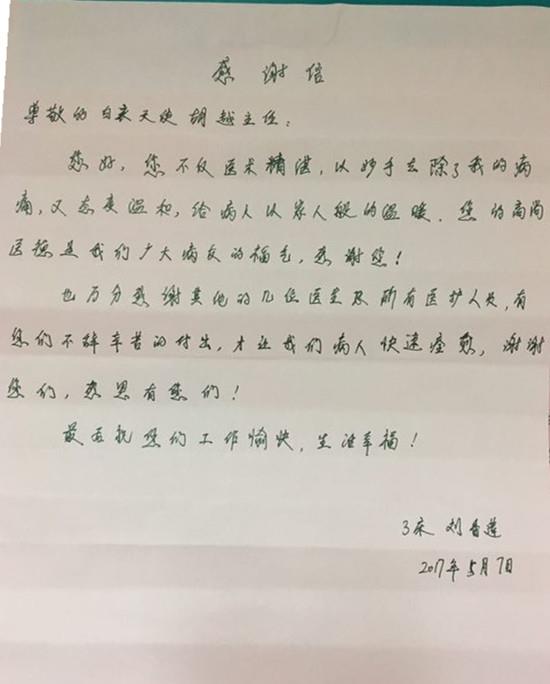 感谢信
尊敬的白衣天使胡越主任：
您好，您不仅医术精湛，以妙手去除了我的病
痛，又态度温和，给病人以家人般的温暖．您的高尚
医德是我们广大病友的福气，感谢您！
也万分感谢其他的几位医生及所有医护人员，有
您们不辞辛苦的付出，才让我们病人快速痊愈，谢谢
您们，感恩有您们！
最后祝您们工作愉快，生活幸福！
3床 刘香莲
2017年5月7日